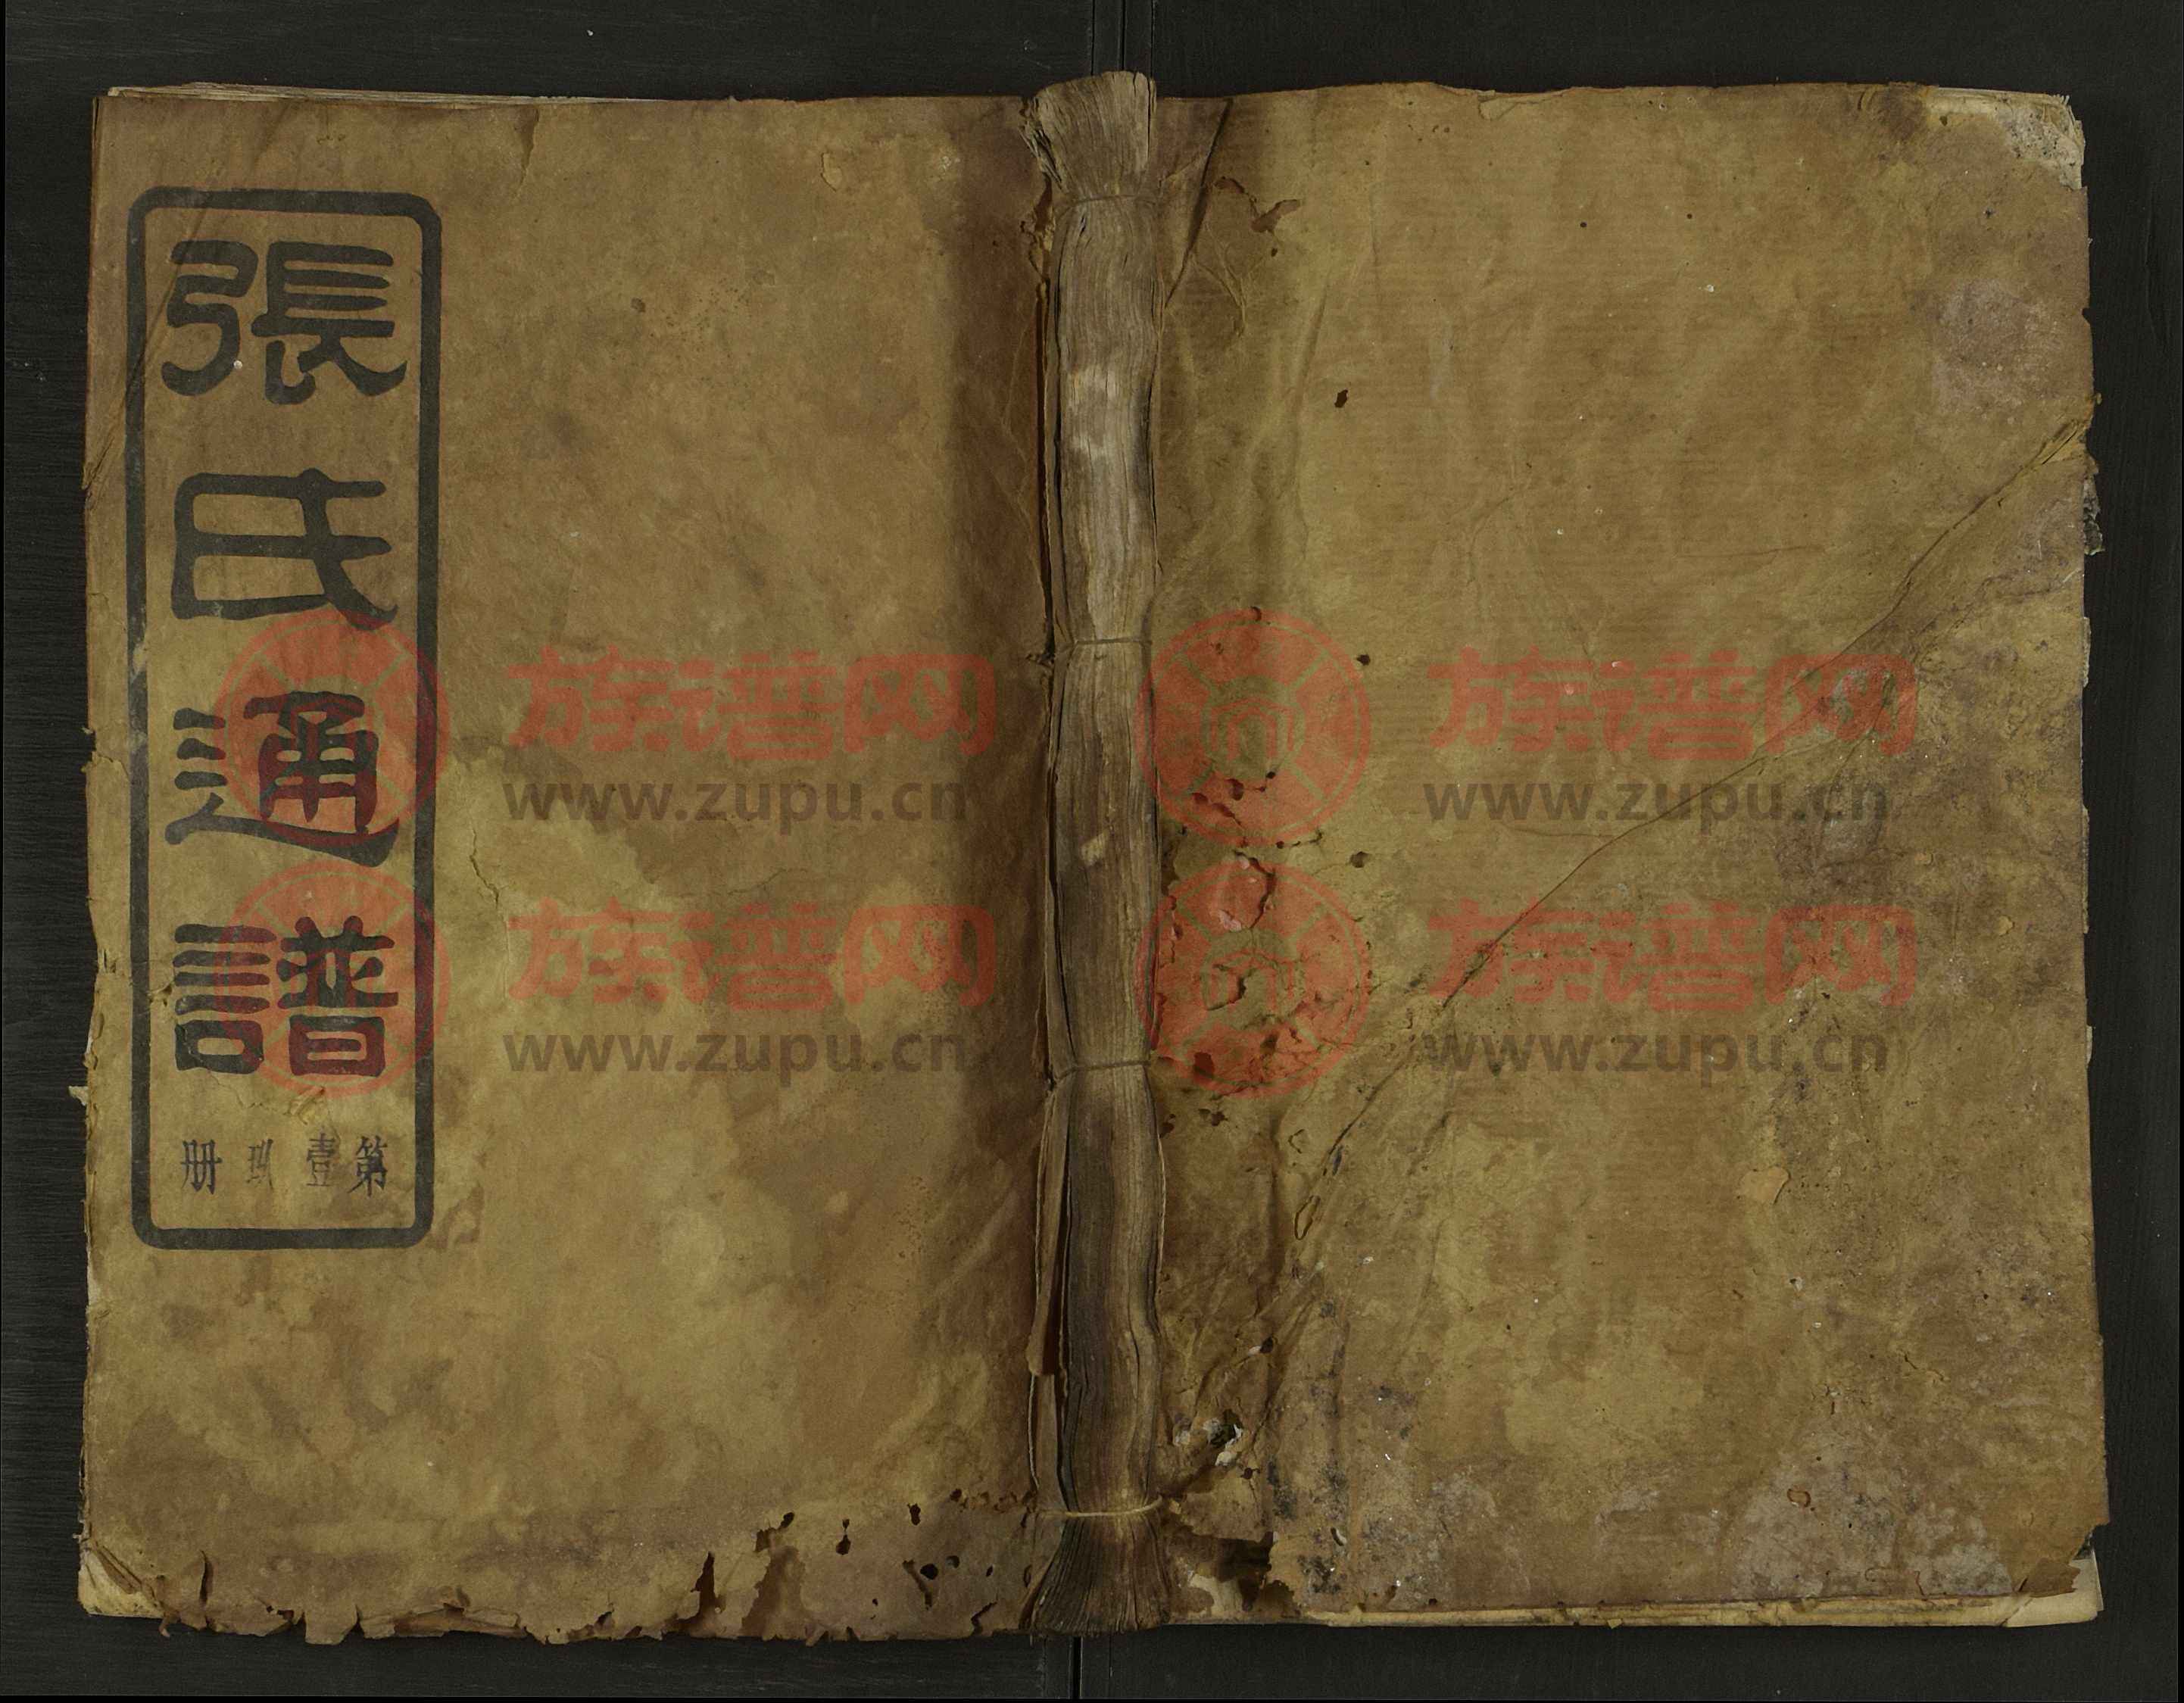 張氏通譜
第壹玖册
族谱网
www.zupu.cn
族谱网
www.zupu.cn
族谱网
www.zupu.cn
族谱网
www.zupu.cn